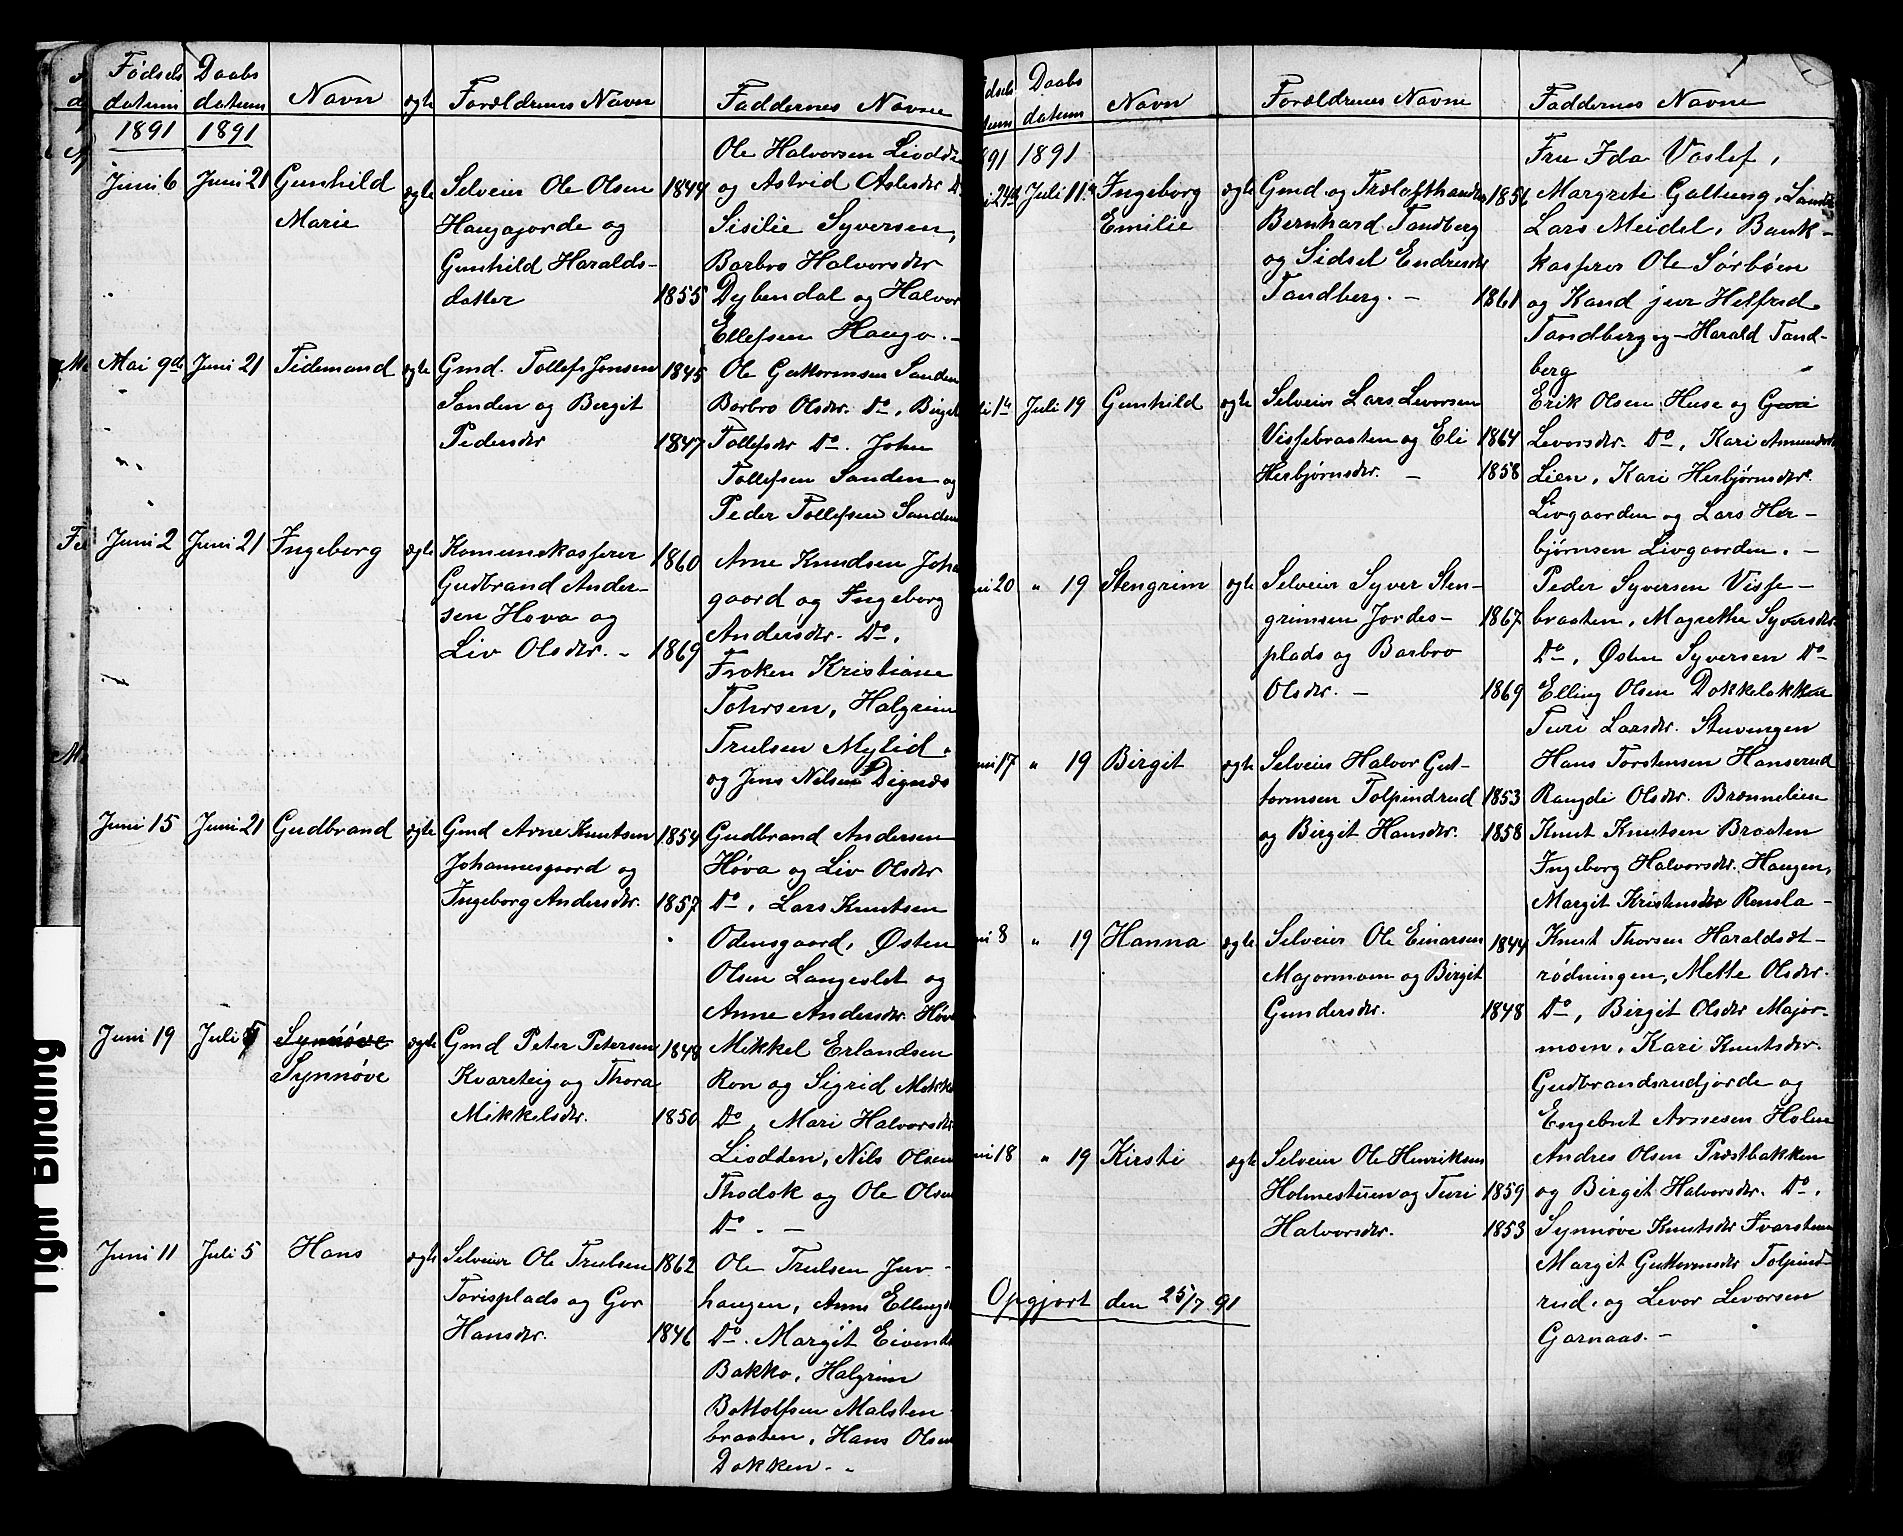 Fødsels Daabs
datum datum Navn ægte Forældrenes Navn Faddernes Navne
1891 1891
Juni 6 Juni 21 Gunhild Marie ægte
Selveier Ole Olsen 1844
Haugajorde og
Gunhild Haralds-
datter 1855
Ole Halvorsen
og Astrid
Sisilie Syversen,
Barbro Halvorsdtr
Dybendal og Halvor
Ellefsen Haugo. –
Mai 9de Juni 21 Tidemand ægte
Gmd. Tollef Jonsen 1845
Sanden og Bergit
Pedersdtr 1847
Ole Guttormsen Sanden
Barbro Olsdtr. Do, Birgit
Tollefsdtr Do. John
Tollefsen Sanden og
Peder Tollefsen Sanden
Juni 2 Juni 21 Ingeborg ægte
Komunekasserer 1860
Gudbrand Ander-
sen Hova og
Liv Olsdtr. – 1869
Arne Knudsen Joha
gaard og Ingeborg
Andersdtr. Do.
Frøken Kristiane
Tohrsen, Halgrim
Trulsen Mylid.
og Jens Nilsen Dignæs
Juni 15 Juni 21 Gudbrand ægte
Gmd Arne Knutsen 1854
Johannesgaard og
Ingeborg Andersdtr. 1857
Gudbrand Andersen
Høva og Liv Olsdtr
Do, Lars Knutsen
Odensgaard, Østen
Olsen Langeslet og
Anne Andersdtr. Høva
Juni 19 Juli 5 Synnøve
Synnøve ægte
Gmd Peter Petersen 1848
Kvareteig og Thora
Mikkelsdtr. 1850
Mikkel Erlandsen
Ron og Sigrid Mikkel
Do, Mari Halvorsdtr
Liodden, Nils Olsen
Thodok og Ole Olsen
Do. –
Juni 11 Juli 5 Hans ægte
Selveier Ole Trulsen 1862
Torisplads og Gor
Hansdtr. 1846
Ole Trulsen Juv-
haugen, Anne Ellingsd
Do. Margit Eivends
Bakko, Halgrim
Bottolfsen Malsten-
braaten, Hans Olsen
Dokken. –
dsels Daabs
tum datum Navn Forældrenes Navne Faddernes Navne
891 1891
i 24de Juli 11te Ingeborg Emilie ægte
Gmd og Trælasthandler 1856
Bernhard Tandberg
og Sidsel Endresdtr
Tandberg. – 1861
Fru Ida Vaslef,
Margrete Galtung,
Lars Meidel, Bank-
kasserer Ole Sørbøen
og Kand jur Helfred
Tandberg og Harald Tand-
berg
li 1te Juli 19 Gunhild ægte
Selveier Lars Levorsen
Vissebraaten og Eli 1864
Herbjørnsdtr. – 1858
Erik Olsen Huse og Guri
Levorsdtr. Do, Kari Amundsdtr
Lien, Kari Herbjørnsdtr.
Livgaarden og Lars Her-
bjørnsen Livgaarden. –
ni 20 " 19 Stengrim ægte
Selveier Syver Sten-
grimsen Jordes- 1867
plads og Barbro
Olsdtr. – 1869
Peder Syversen Visse-
braaten, Magrethe Syversdtr
Do, Østen Syversen Do
Elling Olsen Dokkeløkken
Turi Larsdtr. Stuvengen
uni 17 " 19 Birgit ægte
Selveier Halvor Gut-
tormsen Tolpindrud 1853
og Birgit Hansdtr. 1858
Hans Torstensen Hanserud
Rangdi Olsdtr. Brennelien
Knut Knutsen Braaten
Ingeborg Halvorsdtr. Haugen,
Margit Kristensdtr Rensla –
ni 8 " 19 Hanna ægte
Selveier Ole Einarsen 1844
Majormoen og Birgit
Gundersdtr. 1848
Knut Thorsen Haraldsæt-
rødningen, Mette Olsdtr.
Do, Birgit Olsdtr Major-
moen, Kari Knutsdtr.
Gudbrandsrudjorde og
Engebret Arnesen Holm
ni 18 " 19 Kirsti ægte
Selveier Ole Henriksen
Holmestuen og Turi 1859
Halvorsdtr. 1853
Andres Olsen Præstbakken
og Birgit Halvorsdtr. Do,
Synnøve Knutsdtr Tvarstuen
Margit Guttormsdtr Tolpind-
rud. og Levor Levorsen
Garnaas. –
Opgjort den 25/7 91
Tight Binding